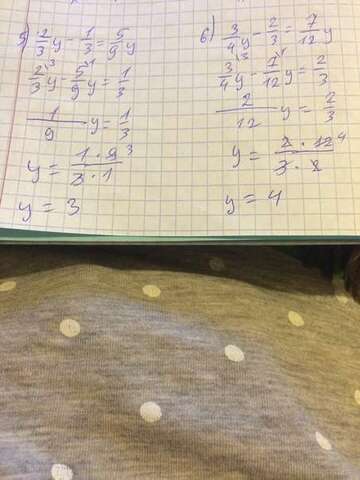 5) 2/3 y - 1/3 = 5/9 y
2/3 ^3 y - 5/9 ^1 y = 1/3
1/9 y = 1/3
y = 1·9 ^3 / 3·1
y = 3
6) 3/4 y - 2/3 = 7/12 y
3/4 ^3 y - 7/12 ^1 y = 2/3
2/12 y = 2/3
y = 2·12 ^4 / 3·2
y = 4